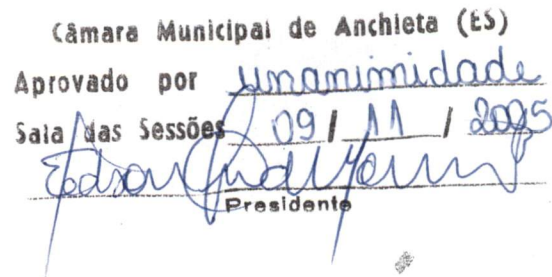 Câmara Municipal de Anchieta (ES)
Aprovado por unanimidade
Sala das Sessões 09 / 11 / 2005
Edson
Presidente